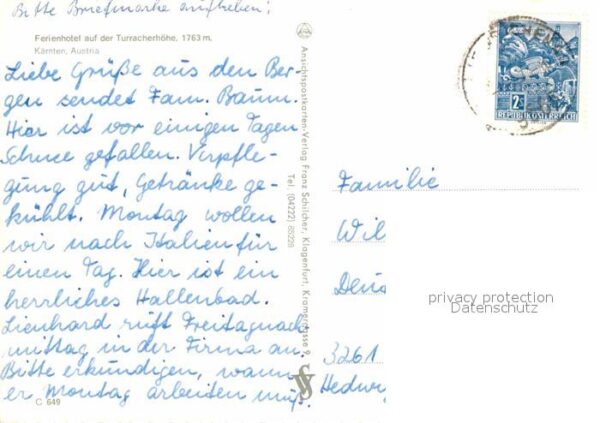 Bitte Briefmarke aufheben!
Ferienhotel auf der Turracherhöhe, 1763 m,
Kärnten, Austria
Liebe Grüße aus den Ber-
gen sendet Fam. Baum.
Hier ist vor einigen Tagen
Schnee gefallen. Verpfle-
gung gut, Getränke ge-
kühlt. Montag wollen
wir nach Italien für
einen Tag. Hier ist ein
herrliches Hallenbad.
Lienhard ruft Freitagnach
mittag in der Firma an
Bitte erkundigen, wann
er Montag arbeiten muß.
C 649
Ansichtspostkarten-Verlag Franz Schilcher, Klagenfurt, Kramergasse 9,
Tel. (04222) 85228
2 S
REPUBLIK ÖSTERREICH
Familie
Wil
3261
privacy protection
Datenschutz